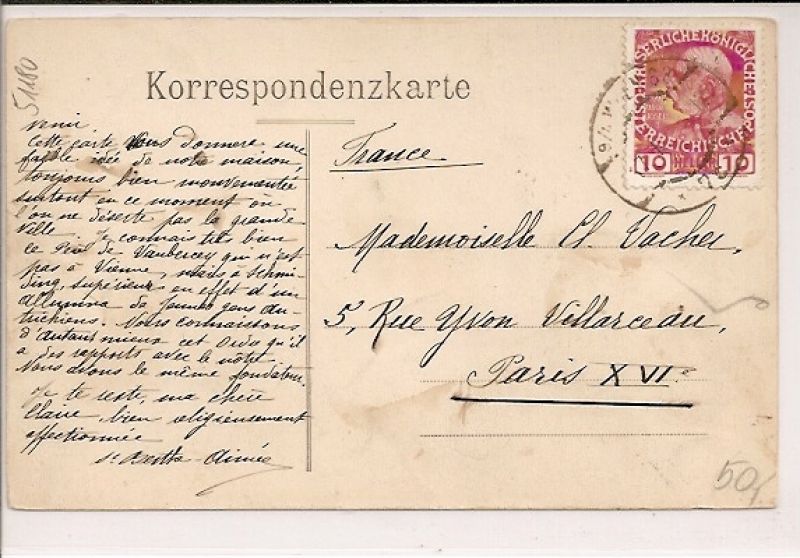 51180
Korrespondenzkarte
KAISERLICHE KÖNIGLICHE
ÖSTERREICHISCHE
10 10
France
Mademoiselle Cl. Vacher,
5, Rue Yvon Villarceau,
Paris XVIe
venir
Cette carte vous donnera une
faible idée de notre maison,
toujours bien mouvementée
surtout en ce moment où
l'on ne déserte pas la grande
ville. Je connais très bien
le de Vaubercey qui n'est
pas à Vienne, mais à Schmi-
ding, supérieur en effet d'un
de jeunes gens au-
trichiens. Nous connaissons
d'autant mieux cet Ordre qu'il
a des rapports avec le nôtre.
Nous avons le même fondateur.
Je te reste, ma chère
Claire, bien religieusement
affectionnée
Sr Berthe Aimée
50